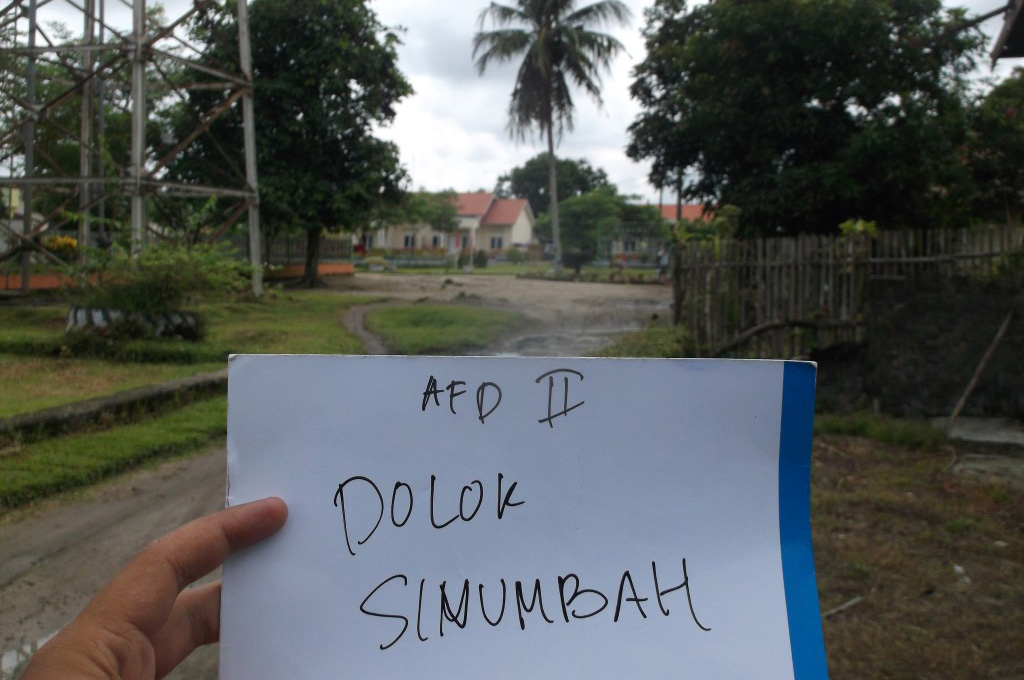 AFD II
DOLOK
SINUMBAH